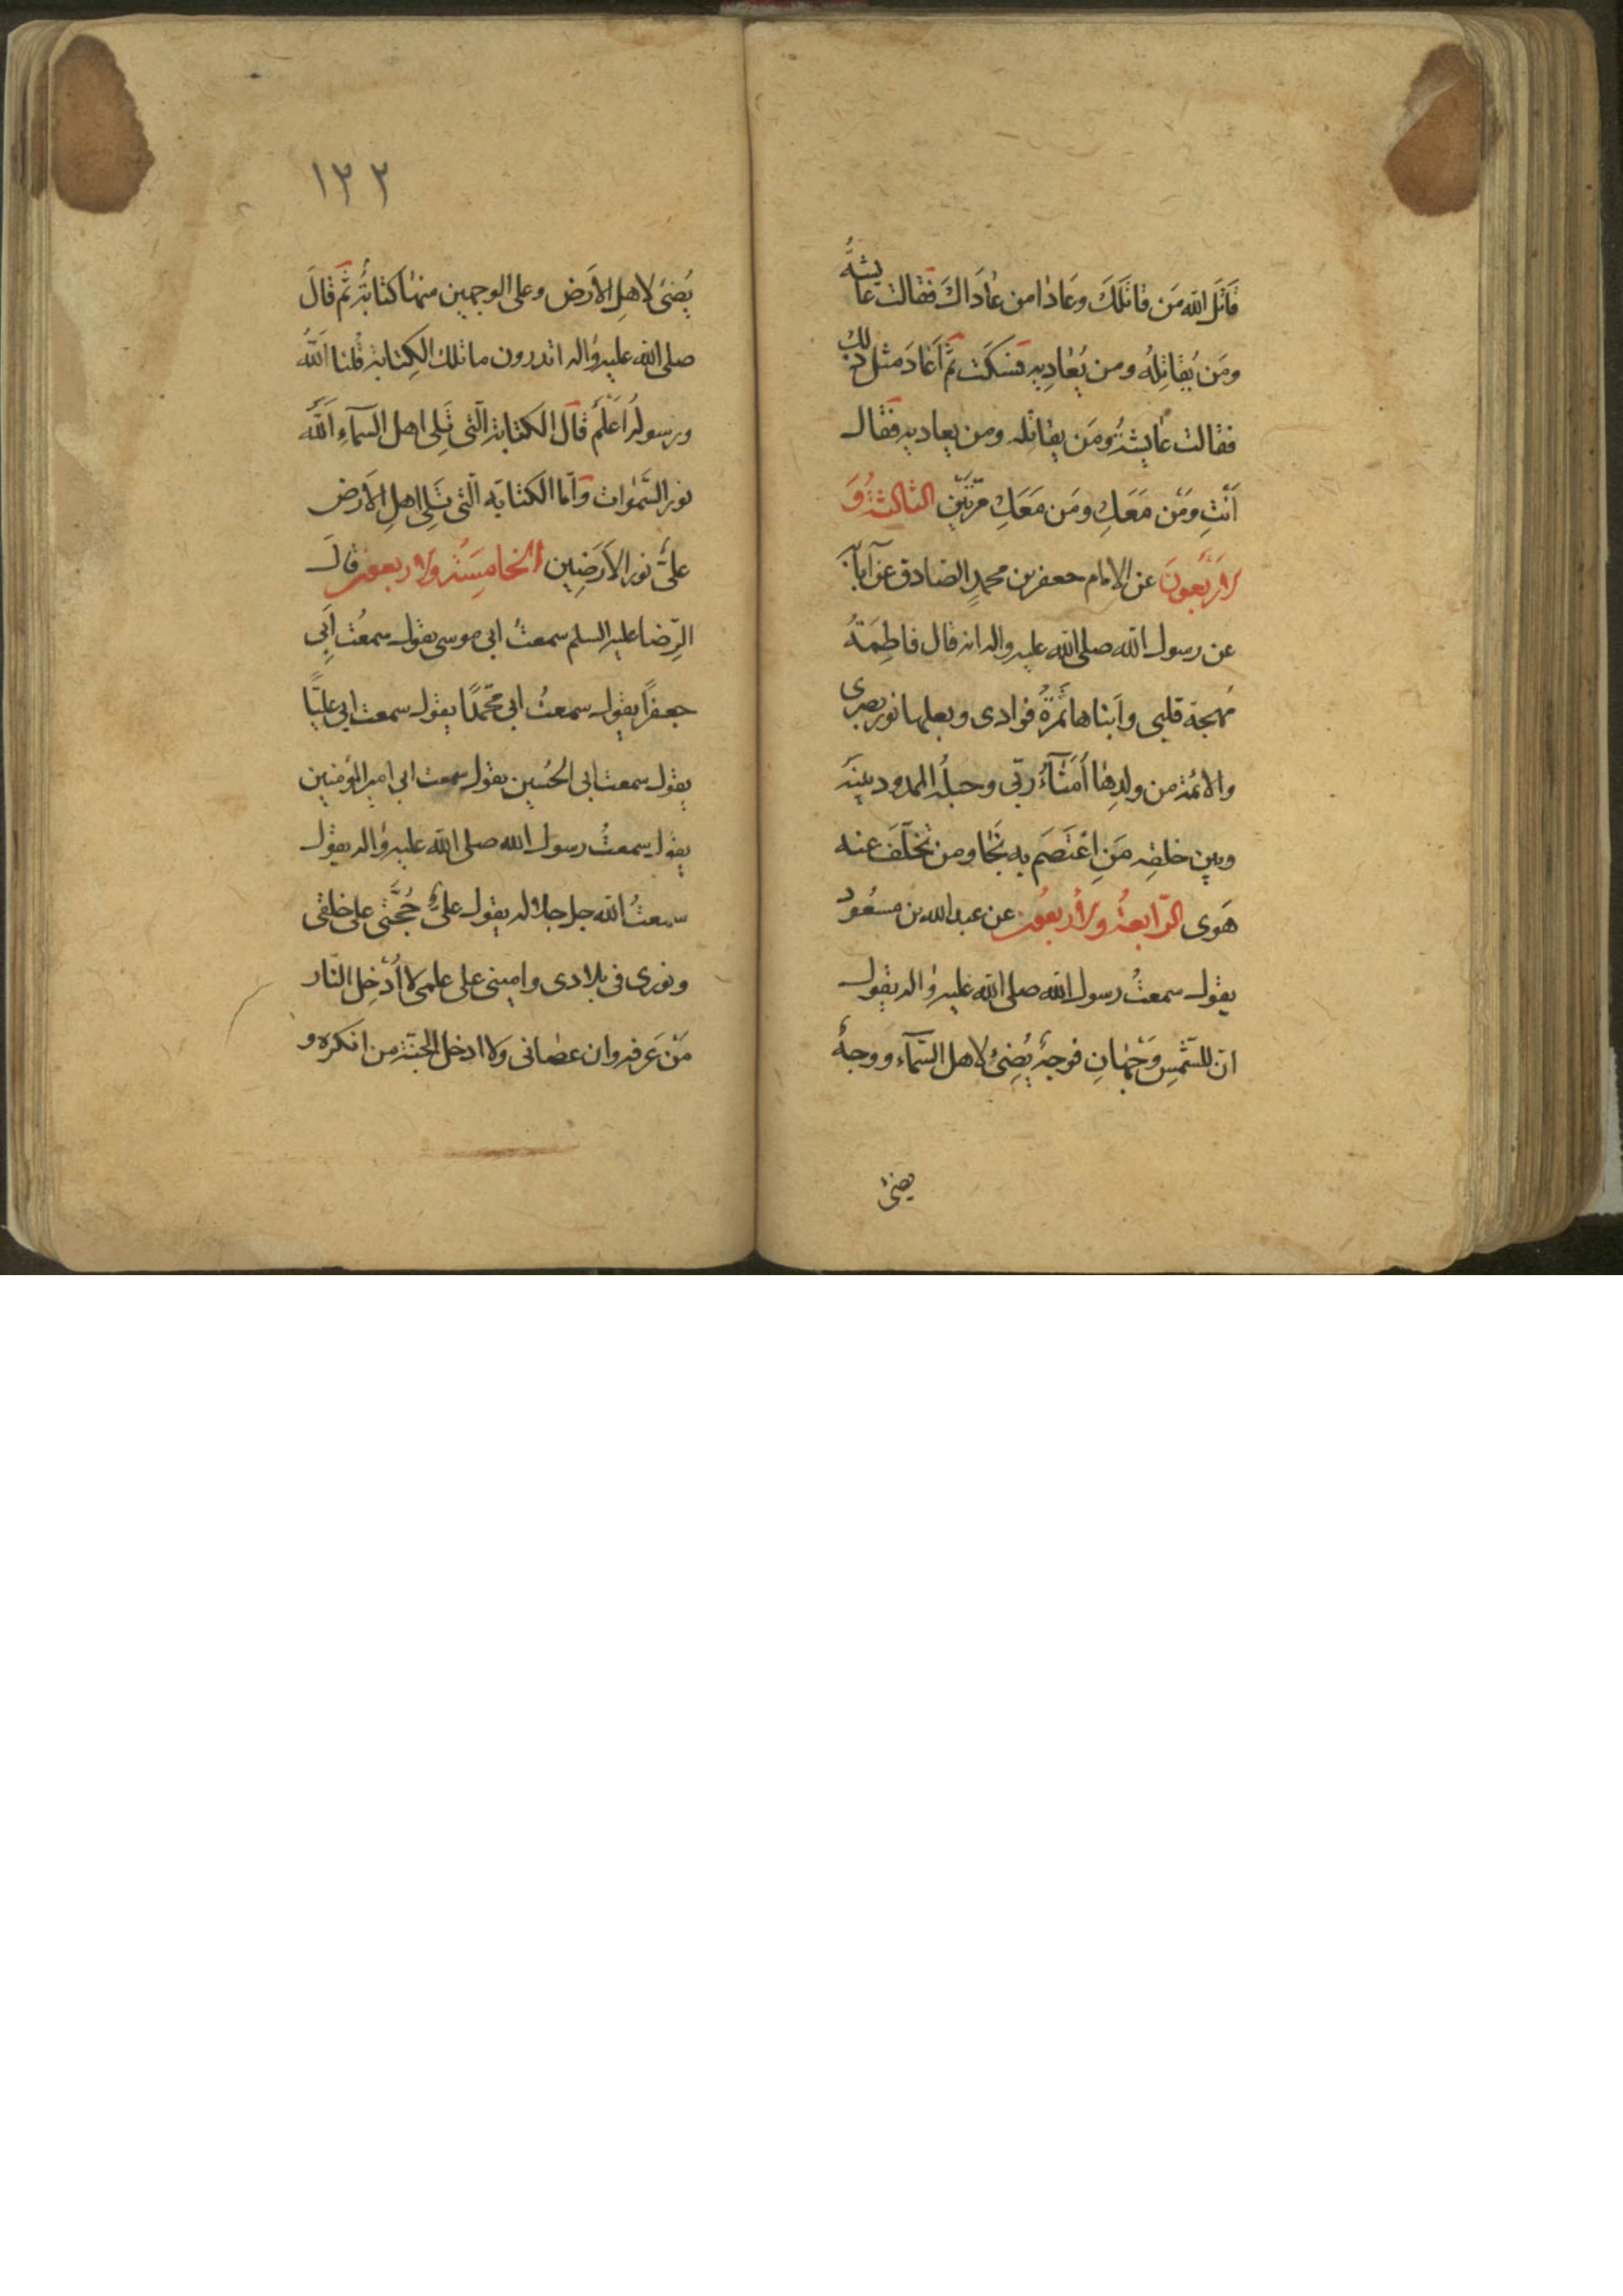 قَاتَلَ الله مَن قاتَلَكَ وعَادٰا من عٰادَاكَ فقالت عايشةُ
ومَن يُقاتِلهُ ومن يُعٰادِيهِ فسَكَتَ ثمَّ اَعَادَ مثل ذلك
فقالت عٰايشةُ ومَن يقاتله ومن يعاديه فقال
اَنْتِ ومَن مَعَكِ ومَن مَعَكِ مرّتَين الثالثةُ وَ
الاَربَعُونَ عن الامام جعفر بن محمدٍ الصّادق عن آبائه
عن رسول الله صلى الله عليه واله انه قال فاطِمَةُ
مُهجة قلبى وابناها ثمَرَةُ فوادى وبعلها نور بصرى
والائمة من ولدِهٰا اُمَنٰآءُ ربّى وحبلُه الممدود بينَه
وبين خلقِه مَنِ اعْتَصَم به نَجٰا ومن تخَلَّفَ عنه
هَوى الرّابعةُ والأربعُون عن عبد الله بن مسعُود
يقول سمعتُ رسول الله صلى الله عليه واله يقول
انّ للشّمسِ وَجْهٰانِ فوجهٌ يُضِئُ لاهل السّمآء ووجهٌ
يضئ
١٣٣
يُضئ لاهلِ الاَرض وعلى الوجهين منهٰا كتابةٌ ثمّ قالَ
صلى الله عليه واله اتدرون ما تلك الكِتابة قُلنا اَللهُ
ورسولُه اَعْلَمُ قال الكتابة الّتى تَلِى اهل السّمآءِ اَللهُ
نور السَّمٰوات وَاَمّا الكتابَه الّتى تَلِى اهلِ الاَرض
علىٌّ نور الاَرَضِين الخامِسَةُ والاربعون قالَ
الرِّضا عليه السلم سمعتُ ابى موسى يقول سمعتُ اَبِى
جعفراً يقول سمعتُ ابى محمّدًا يقول سمعت ابى عليًّا
يقول سمعت ابى الحُسَين يقول سمعت ابى امير المؤمنين
يقول سمعتُ رسول الله صلى الله عليه واله يقول
سمعتُ الله جل جلاله يقول علىٌّ حُجَّتى على خلقى
ونورى فى بلادى وامينى على علمى لا اُدْخِل النّار
مَنْ عَرفه وان عصانى ولا ادخل الجنّة من انكره و